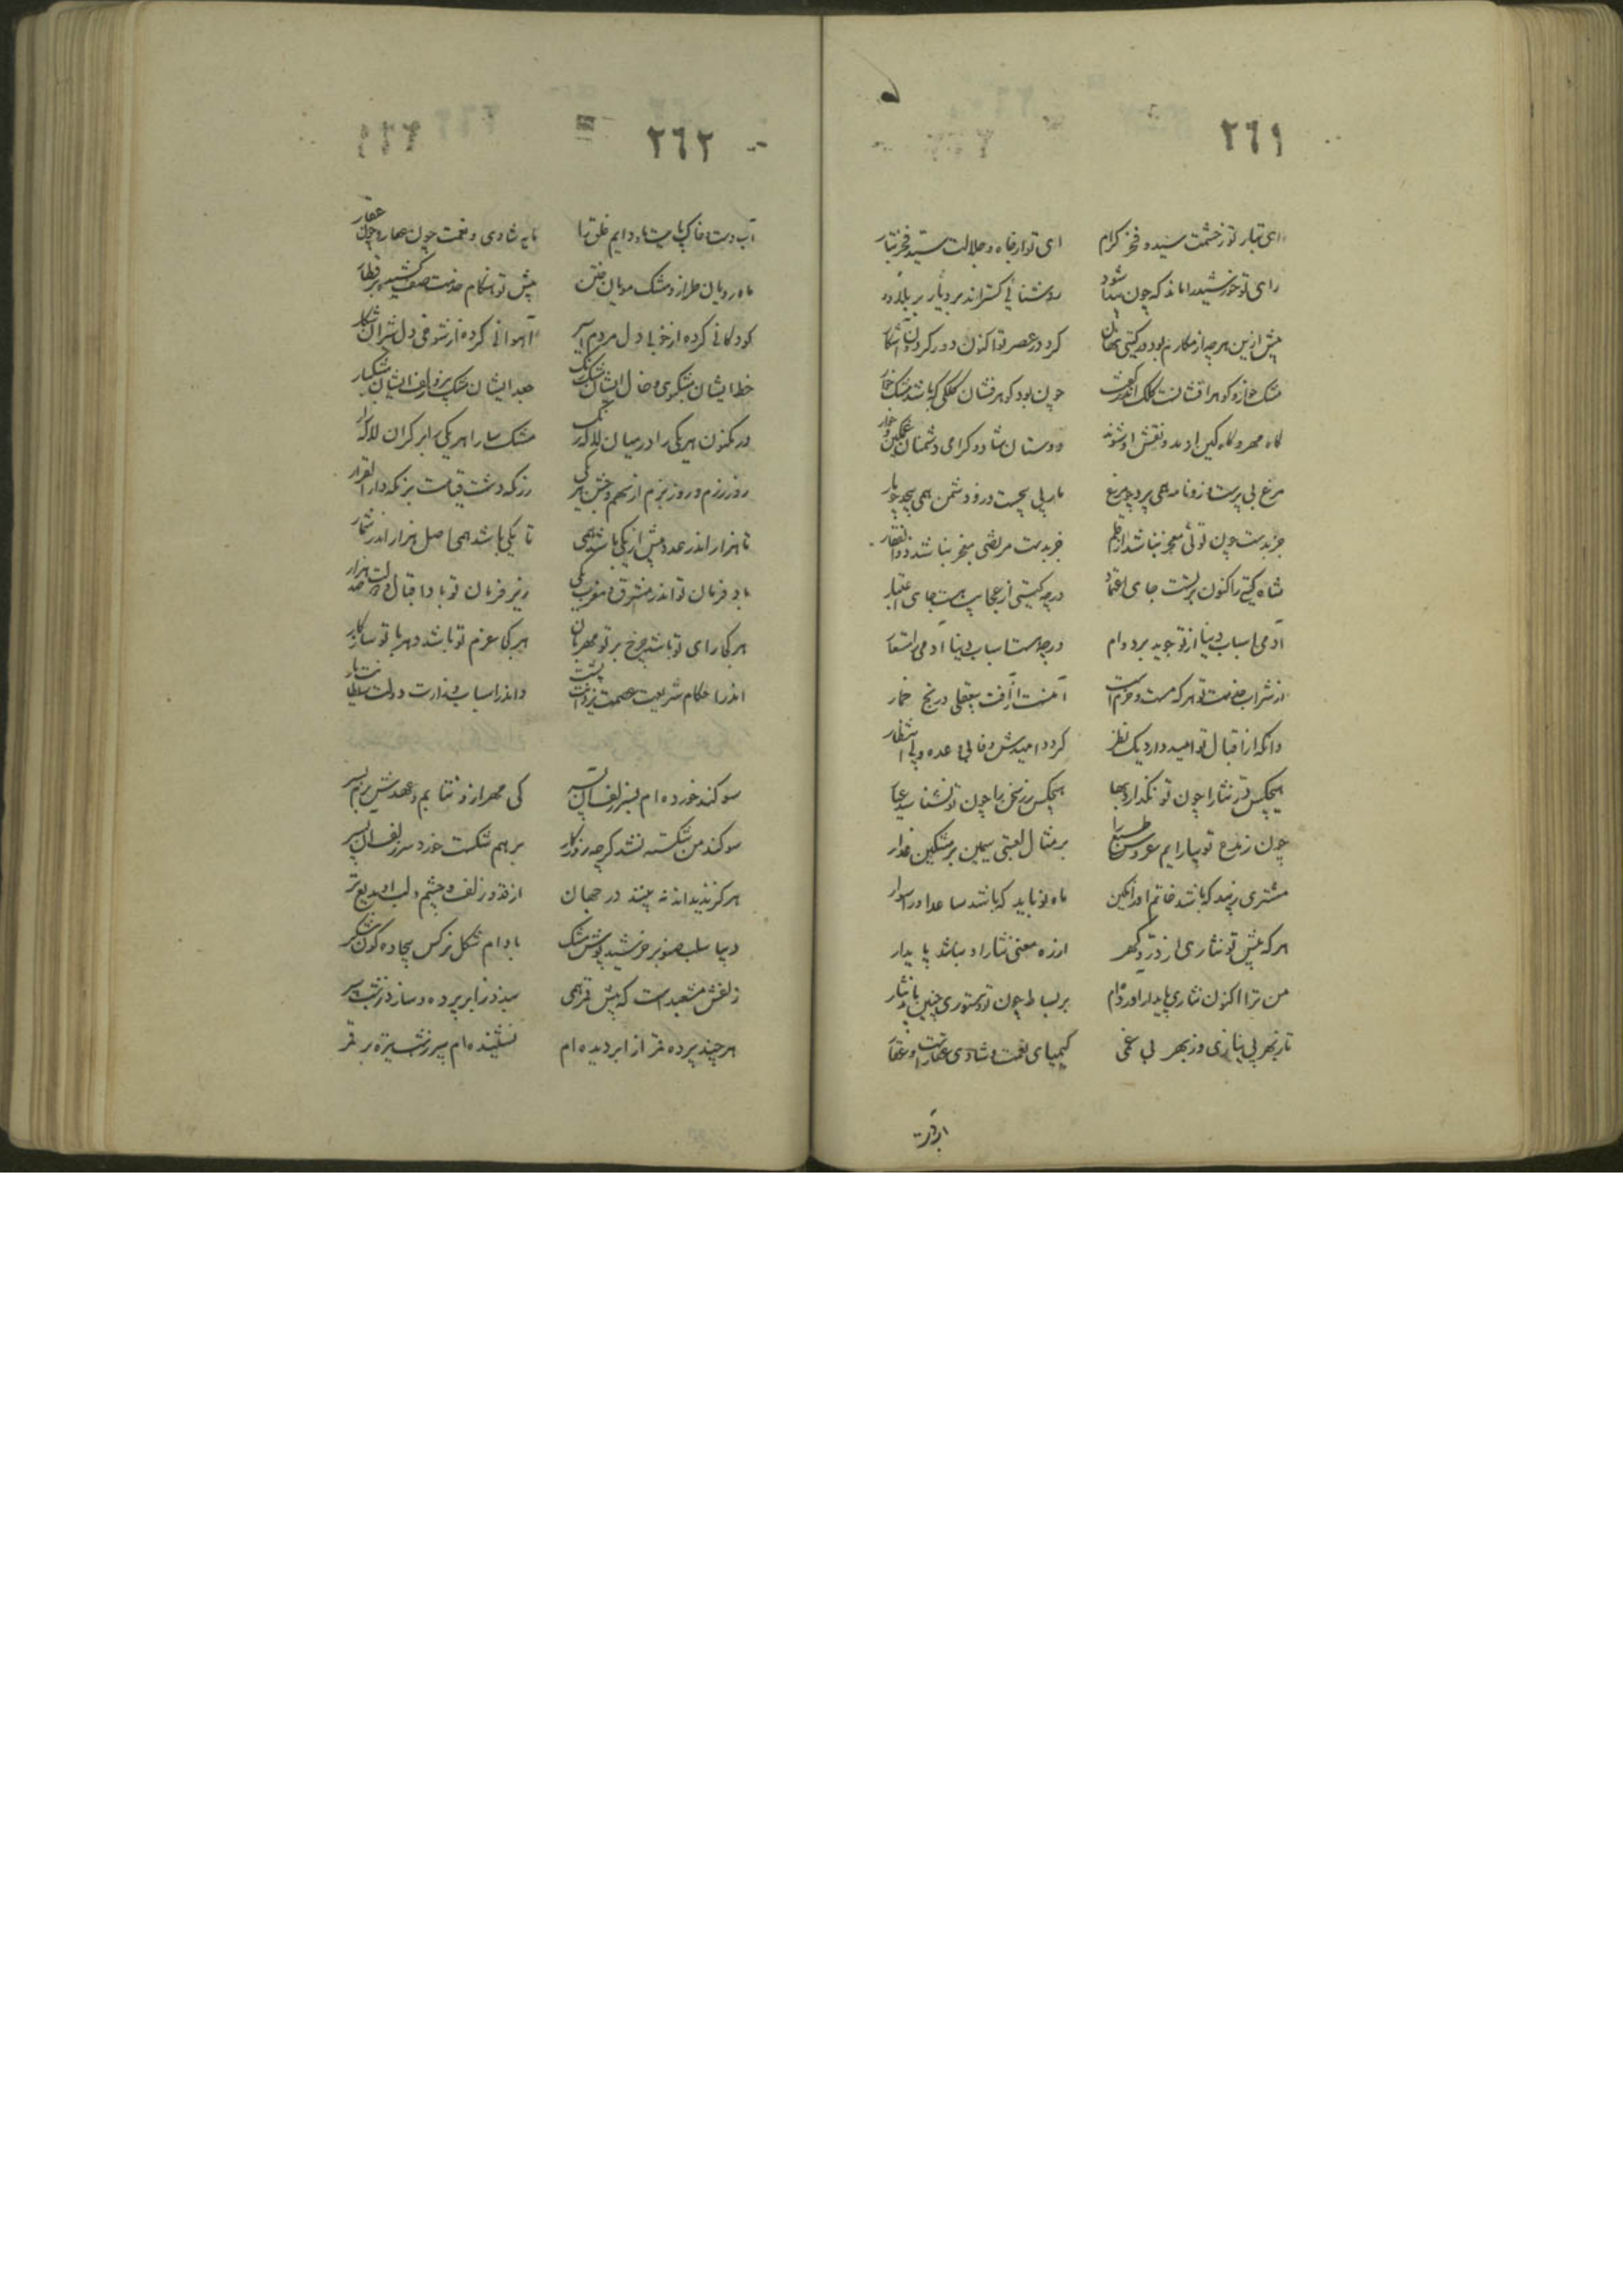 ٢٦١
ای تبار تو ز حشمت سید و فخر کرام ای تو از جاه و جلالت سید و فخر تبار
رای تو خورشید را ماند که چون پیدا شود روشنائی گستراند بر دیار و بر بلاد
پیش ازین هر چه از مکارم بود در گیتی نهان کرد در عصر تو اکنون دور گردون آشکار
مشک خوار و گوهر افشانست کلک اندر کفت چون بود گوهر فشان کلکی که باشد مشک خوار
گاه مهر و گاه کین از نقش او شوند دوستان شاد و گرامی دشمنان غمگین و خوار
مرغ بی پرست از و نامه همی پرد چو مرغ مار بی پیچست و زو دشمن همی پیچد چو مار
جز بدست چون توئی معجز نباشد از قلم جز بدست مرتضی معجز نباشد ذوالفقار
شاه گیتی را کنون بر تست جای اعتماد در چه گیتی از عجایب هست جای اعتبار
آدمی اسباب دنیا از تو جوید بر دوام در چه هست اسباب دنیا آدمی را مستعار
از شراب خدمت تو هر که مست و خرم است ایمنست از آفت بیعقلی و رنج خمار
وانکه از اقبال تو امید دارد یک نظر گردد امیدش وفا بی وعده و بی انتظار
هیچکس قدر ثنا را چون تو نگذارد بها هیچکس زر سخن را چون تو نشناسد عیار
چون ز مدح تو بیارایم عروس طبع را بر مثال لعبتی سیمین بر مشکین عذار
مشتری زیبد که باشد خاتم او را نگین ماه نو باید که باشد ساعد او را سوار
هر که پیش تو نثاری از در و گهر از ره معنی نثار او نباشد پایدار
من ترا اکنون نثاری پایدار آورده ام بر بساط چون تو دستوری چنین باید نثار
تا ز بهر بی نیازی وز بهر بی غمی کیمیای نعمت و شادی عقارست و عقار
آبدست
٢٦٢
آب دست و خاک پایت باد دایم خلق را مایه شادی و نعمت چون عقار و چون عقار
ماه رویان طراز و مشک مویان ختن پیش تو هنگام خدمت صف کشیده بر قطار
کودکانی کرده از خوبی دل مردم اسیر آهوانی کرده از شوخی دل شیران شکار
خط ایشان مشکبوی و خال ایشان مشکرنگ جعد ایشان مشک بیز و زلف ایشان مشکبار
در مکنون هر یکی را در میان لاله برگ مشک سارا هر یکی را بر کران لاله زار
روز رزم و روز بزم از سهم و جشن هر یکی رزمگه دشت قیامت بزمگه دار القرار
تا هزار اندر عدد بیش از یکی باشد همی تا یکی باشد همی اصل هزار اندر شمار
باد فرمان تو اندر مشرق و مغرب یکی زیر فرمان تو باد اقبال و دولت صد هزار
هر کجا رای تو باشد چرخ بر تو مهربان هر کجا عزم تو باشد دهر با تو سازگار
اندر احکام شریعت عصمت یزدانت پشت و اندر اسباب وزارت دولت سلطانت یار
سوگند خورده ام بسر زلف آن پسر کی مهر ازو نتابم و عهدش برم بسر
سوگند من شکسته نشد گر چه روزگار بر هم شکست خورد سر زلف آن پسر
هرگز ندیده اند نه بینند در جهان از قد و زلف و چشم و لب او بدیع تر
دیبا سلب صنوبر خورشید پوش مشک بادام شکل نرگس بیجاده گون شکر
زلفش مشعبد است که پیش قمر همی سازد ز ابر پرده و سازد ز شب سپر
هر چند پرده قمر از ابر دیده ام نشنیده ام سپر ز شب تیره بر قمر